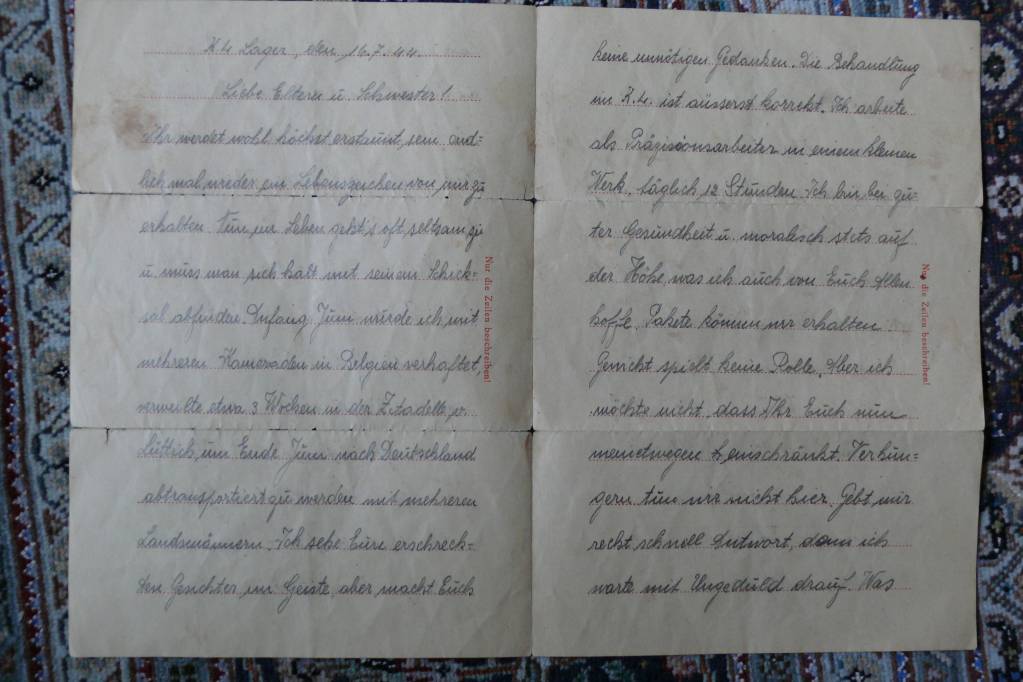 K.L. Lager, den 16.7.44.
Liebe Eltern u. Schwester!
Ihr werdet wohl höchst erstaunt sein end=
lich mal wieder ein Lebenszeichen von mir zu
erhalten. Nun im Leben geht's oft seltsam zu
u. muss man sich halt mit seinem Schick=
sal abfinden. Anfang Juni wurde ich mit
mehreren Kameraden in Belgien verhaftet,
verweilte etwa 3 Wochen in der Zitadelle v.
Lüttich, um Ende Juni nach Deutschland
abtransportiert zu werden mit mehreren
Landsmännern. Ich sehe Eure erschreck=
ten Gesichter im Geiste, aber macht Euch
Nur die Zeilen beschreiben!
keine unnötigen Gedanken. Die Behandlung
im K.L. ist äusserst korrekt. Ich arbeite
als Präzisionsarbeiter in einem kleinen
Werk, täglich 12 Stunden. Ich bin bei gu=
ter Gesundheit u. moralisch stets auf
der Höhe, was ich auch von Euch Allen
hoffe. Pakete können wir erhalten
Gewicht spielt keine Rolle. Aber ich
möchte nicht, dass Ihr Euch nun
meinetwegen einschränkt. Verhun=
gern tun wir nicht hier. Gebt mir
recht schnell Antwort, denn ich
warte mit Ungeduld drauf. Was
Nur die Zeilen beschreiben!